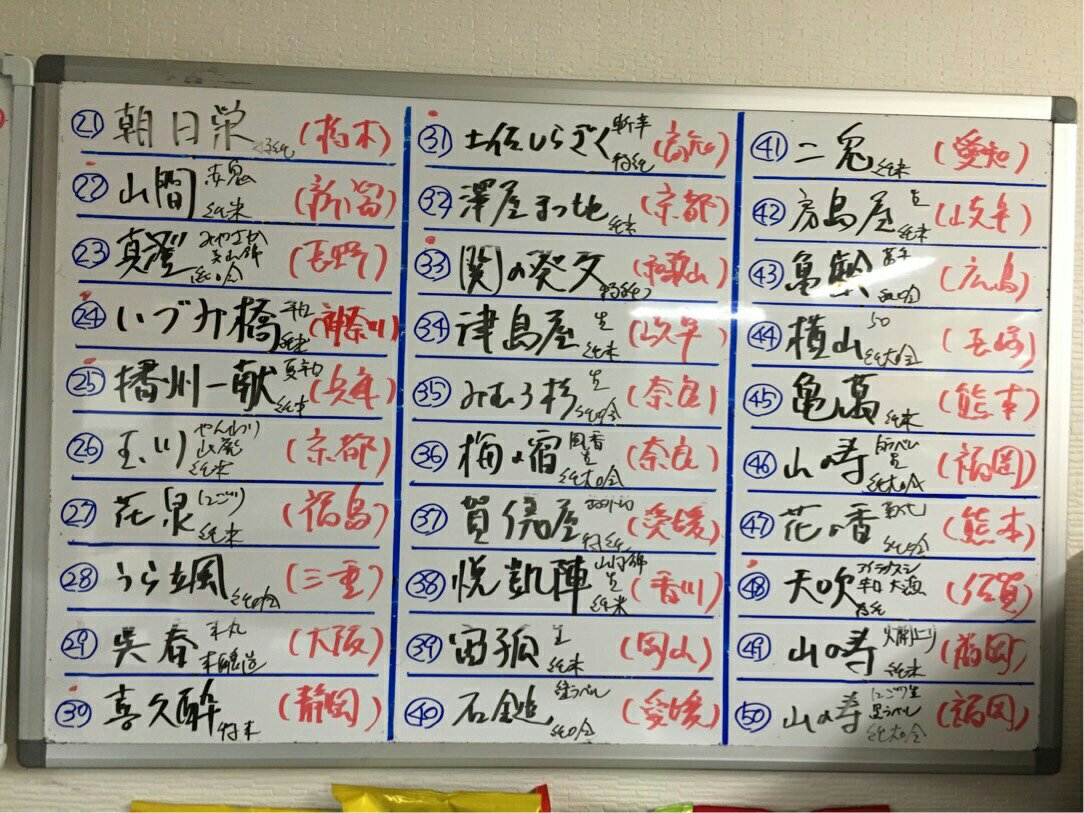 21 朝日栄 (栃木)
22 山間 赤鬼 純米 (新潟)
23 真澄 みやさか 美山錦 純吟 (長野)
24 いづみ橋 純米 (神奈川)
25 播州一献 夏 純米 (兵庫)
26 玉川 やんわり 山廃 純米 (京都)
27 花泉 にごり 純米 (福島)
28 うら 颯 純吟 (三重)
29 呉春 本丸 本醸造 (大阪)
30 喜久酔 特米 (静岡)
31 土佐しらぎく 斬辛 特純 (高知)
32 澤屋まつもと 純米 (京都)
33 関の葵文 特純 (和歌山)
34 津島屋 生 純米 (岐阜)
35 みむろ杉 生 純吟 (奈良)
36 梅の宿 風香 純大吟 (奈良)
37 賀儀屋 特純 (愛媛)
38 悦凱陣 山田錦 生 純米 (香川)
39 宙狐 生 純米 (岡山)
40 石鎚 緑ラベル 純吟 (愛媛)
41 二兎 純米 (愛知)
42 房島屋 生 純米 (岐阜)
43 亀齢 萬年 純吟 (広島)
44 横山 50 純大吟 (長崎)
45 亀萬 純米 (熊本)
46 山の寿 純大吟 (福岡)
47 花の香 菊花 純大吟 (熊本)
48 天吹 特純 (佐賀)
49 山の寿 純米 (福岡)
50 山の寿 にごり生 黒ラベル 純大吟 (福岡)